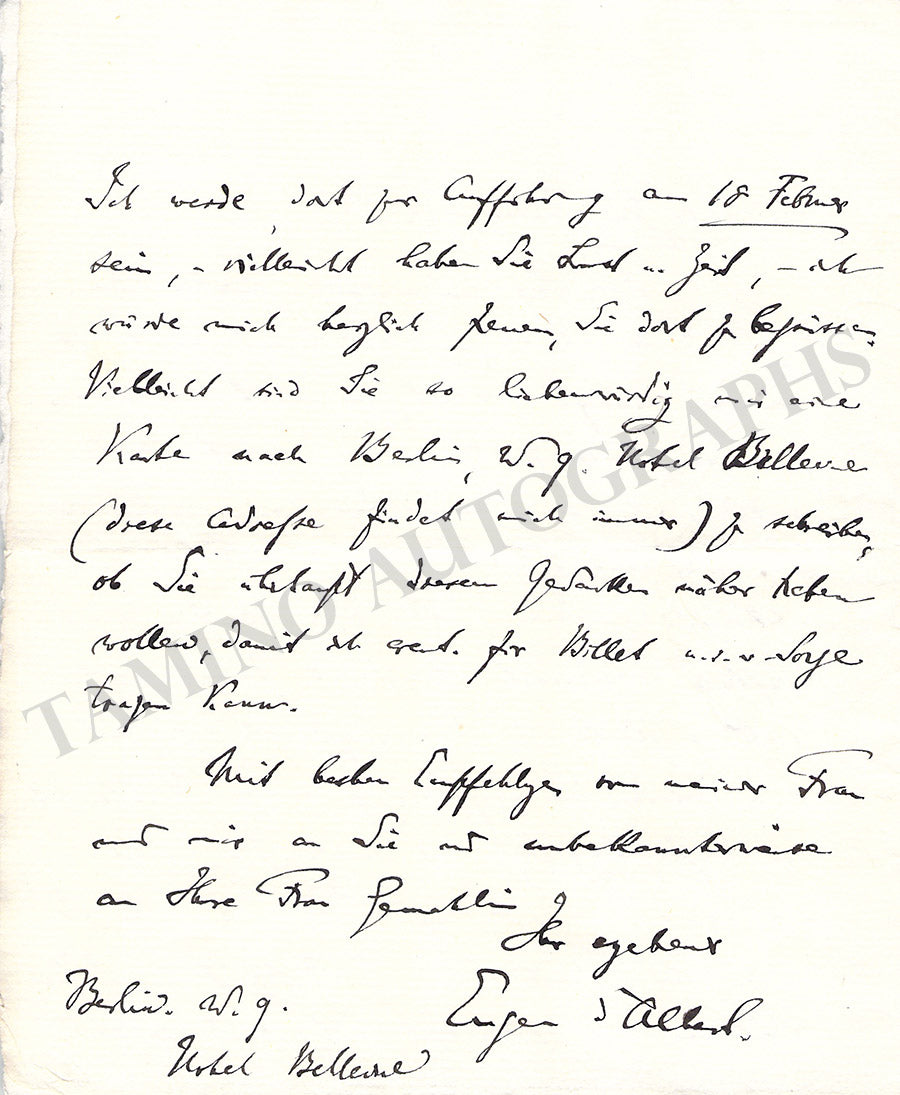 Ich werde dort zur Aufführung am 18 Februar
sein, – vielleicht haben Sie Lust u. Zeit, – ich
würde mich herzlich freuen, Sie dort zu begrüssen.
Vielleicht sind Sie so liebenswürdig mir eine
Karte nach Berlin, W. 9. Hotel Bellevue
(diese Adresse findet mich immer) zu schreiben,
ob Sie überhaupt diesem Gedanken näher treten
wollen, damit ich event. für Billet u.s.w. Sorge
tragen kann.
Mit besten Empfehlgen von meiner Frau
und mir an Sie und unbekannterweise
an Ihre Frau Gemahlin
Ihr ergebener
Eugen d'Albert.
Berlin. W. 9.
Hotel Bellevue
TAMINO AUTOGRAPHS